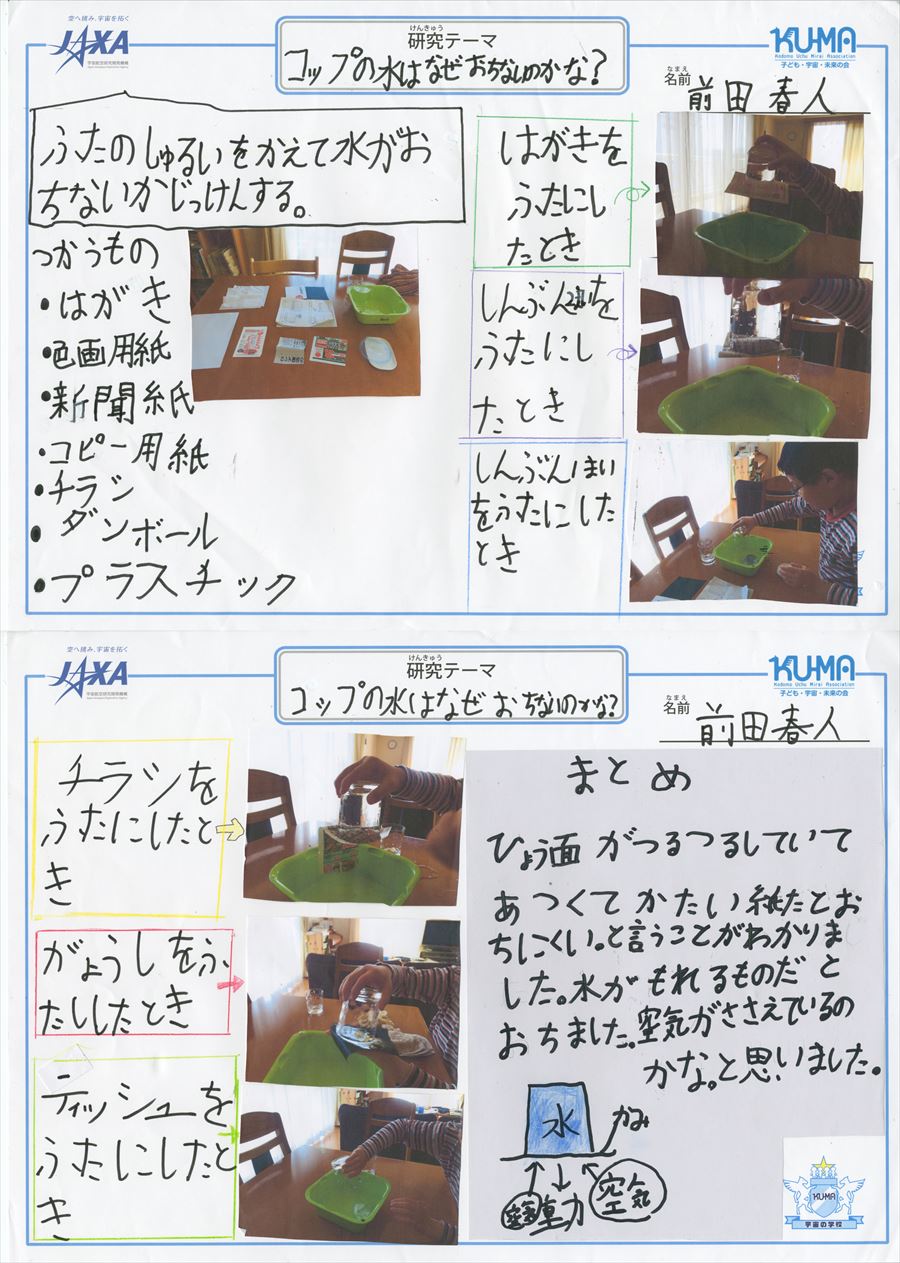 空へ挑み、宇宙を拓く
JAXA
宇宙航空研究開発機構
Japan Aerospace Exploration Agency
けんきゅう
研究テーマ
コップの水はなぜおちないのかな?
KU-MA
Kodomo Uchu Mirai Association
子ども・宇宙・未来の会
なまえ
名前
前田春人
ふたのしゅるいをかえて水がお
ちないかじっけんする。
つかうもの
・はがき
・色画用紙
・新聞紙
・コピー用紙
・チラシ
・ダンボール
・プラスチック
はがきを
ふたにし
たとき
しんぶん2まいを
ふたにし
たとき
しんぶん1まい
をふたにした
とき
空へ挑み、宇宙を拓く
JAXA
宇宙航空研究開発機構
Japan Aerospace Exploration Agency
けんきゅう
研究テーマ
コップの水はなぜおちないのかな?
KU-MA
Kodomo Uchu Mirai Association
子ども・宇宙・未来の会
なまえ
名前
前田春人
チラシを
ふたにしたと
き
がようしをふ
たししたとき
ティッシュを
ふたにしたと
き
まとめ
ひょう面がつるつるしていて
あつくてかたい紙だとお
ちにくい。と言うことがわかりま
した。水がもれるものだと
おちました。空気がささえているの
かな。と思いました。
水
かみ
重力
空気
KU-MA
宇宙の学校